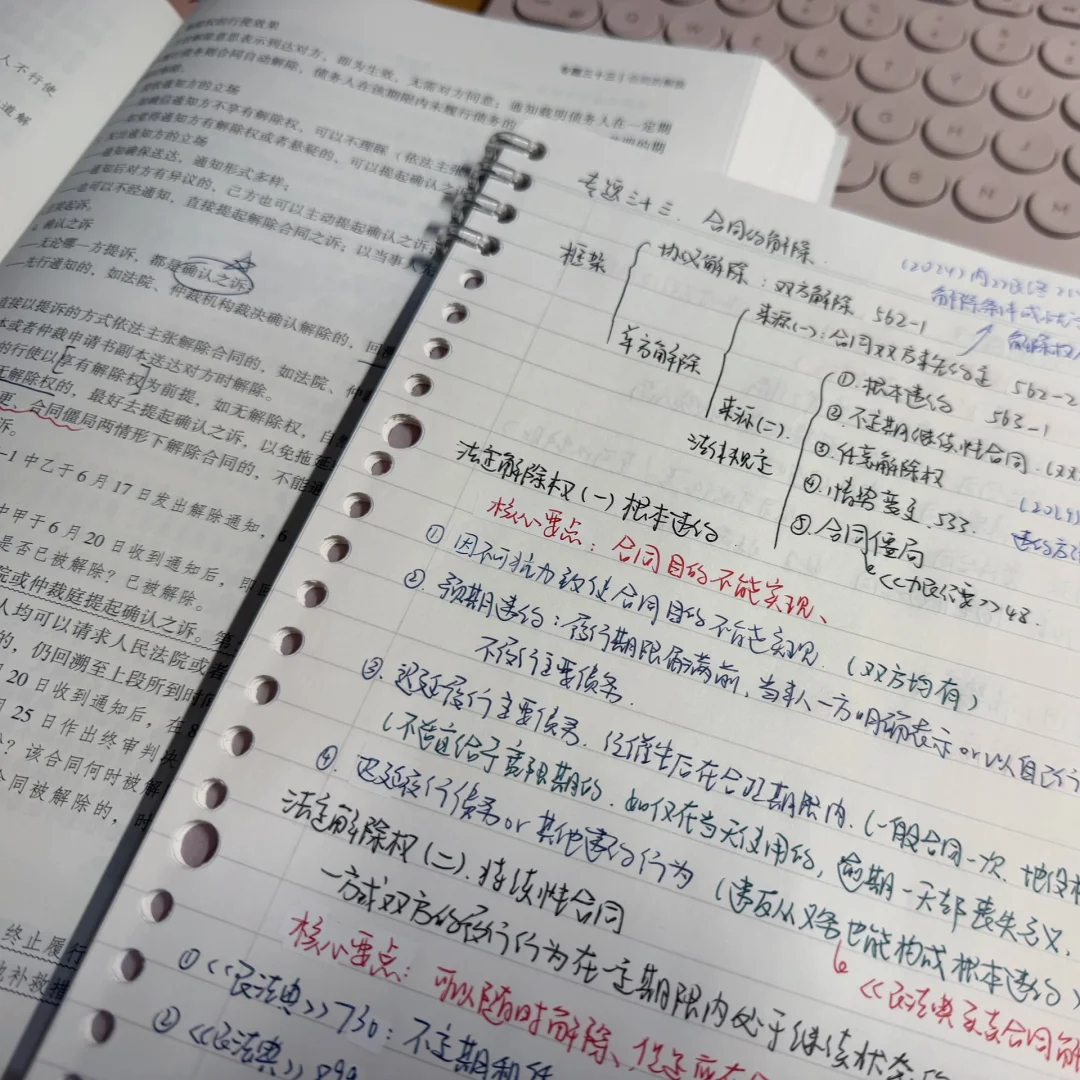 人不行使
道解
权的行使效果
解除意思表示到达对方，即为生效，无需对方同意；通知载明债务人在一定期
债务则合同自动解除，债务人在该期限内未履行债务的
收通知方的立场
确信通知方不享有解除权，可以不理睬（依法主张
觉得通知方有解除权或者悬疑的，可以提起确认之
出通知方的立场
通知确保送达，通知形式多样；
通知后对方有异议的，己方也可以主动提起确认之诉；
也可以不经通知，直接提起解除合同之诉；以当事人
确认之诉
——无论哪一方提诉，都是确认之诉
——先行通知的，如法院、仲裁机构裁决确认解除的，回
直接以提诉的方式依法主张解除合同的，如法院、仲
本或者仲裁申请书副本送达对方时解除。
的行使以享有解除权为前提，如无解除权，自
无解除权的，最好去提起确认之诉，以免拖延
更、合同僵局两情形下解除合同的，不能通
诉。
-1 中乙于 6 月 17 日发出解除通知，6
中甲于 6 月 20 日收到通知后，即
是否已被解除？已被解除。
院或仲裁庭提起确认之诉。第
人均可以请求人民法院或者
的，仍回溯至上段所到时间
20 日收到通知后，在 8
月 25 日作出终审判决
？该合同何时被解
合同被解除的，时
终止履行
补救措
专题三十三 合同的解除
框架
协议解除：双方解除 562-1
单方解除
来源(一)：合同双方事先约定 562-2
来源(二)
法律规定
①.根本违约 563-1
②.不定期继续性合同.
③.任意解除权
④.情势变更 533.
⑤.合同僵局
《九民纪要》48.
(2024)
解除条件成就
解除权
(2024)
违约方
法定解除权(一) 根本违约.
核心要点：合同目的不能实现、
① 因不可抗力致使合同目的不能实现.（双方均有）
②.预期违约：履行期限届满前，当事人一方明确表示or以自己行
不履行主要债务.
③.迟延履行主要债务.经催告后在合理期限内.(一般合同一次.地役权
(不适宜给予宽限期的.如仅在当天使用的，逾期一天都丧失意义.
④.迟延履行债务or其他违约行为（违反从义务也能构成根本违约）
《民法典买卖合同解
法定解除权(二).持续性合同
一方或双方的履行行为在一定期限内处于继续状态的
核心要点：可以随时解除、但是应在
①《民法典》730：不定期租赁
②《民法典》899